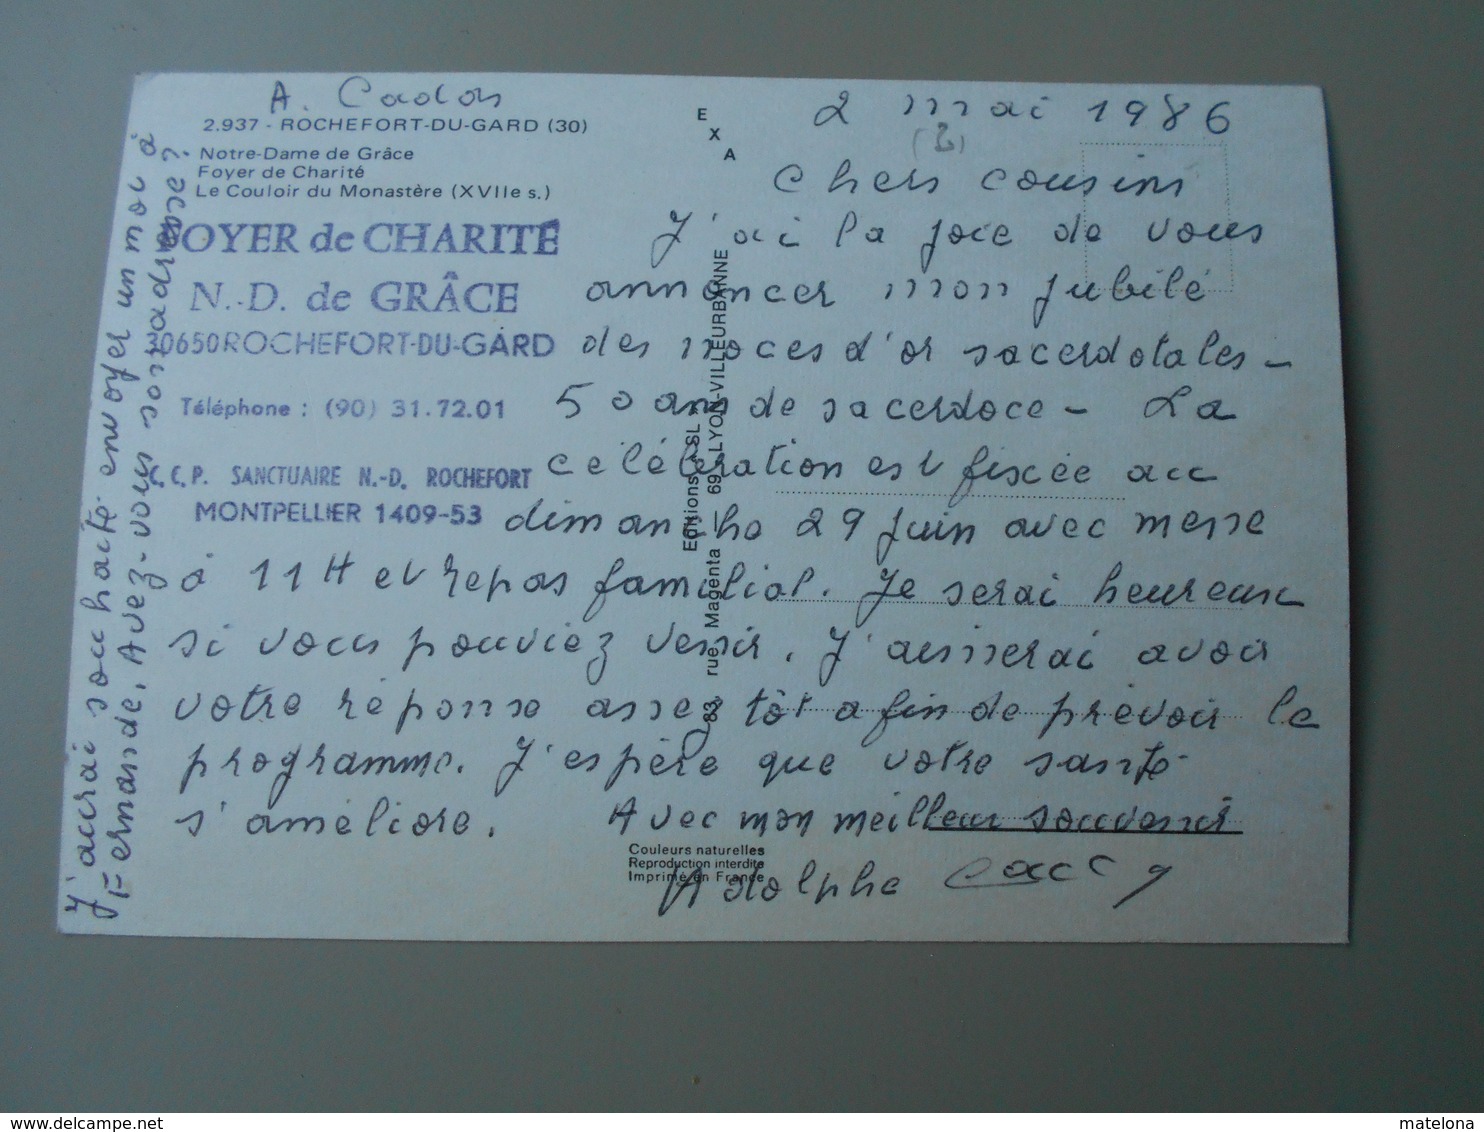 A. Cador
2.937 - ROCHEFORT-DU-GARD (30)
Notre-Dame de Grâce
Foyer de Charité
Le Couloir du Monastère (XVIIe s.)
FOYER de CHARITÉ
N.-D. de GRÂCE
30650 ROCHEFORT-DU-GARD
Téléphone : (90) 31.72.01
C.C.P. SANCTUAIRE N.-D. ROCHEFORT
MONTPELLIER 1409-53
E
X
A
Editions SL
83, rue Magenta — 69 - LYON-VILLEURBANNE
2 mai 1986
Chers cousins
J'ai la joie de vous
annoncer mon jubilé
des noces d'or sacerdotales -
50 ans de sacerdoce - La
célébration est fixée au
dimanche 29 juin avec messe
à 11H et repas familial. Je serai heureux
si vous pouviez venir. J'aimerai avoir
votre réponse assez tôt afin de prévoir le
programme. J'espère que votre santé
s'améliore. Avec mon meilleur souvenir
Adolphe
Couleurs naturelles
Reproduction interdite
Imprimé en France
J'aurai souhaité envoyer un mot à
Fernande, Avez-vous son adresse?
www.delcampe.net
matelona